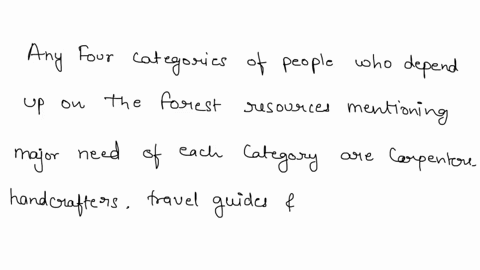 Any Four categories of people who depend
up on the forest resources mentioning
major need of each Category are Carpenters
handcrafters, travel guides &